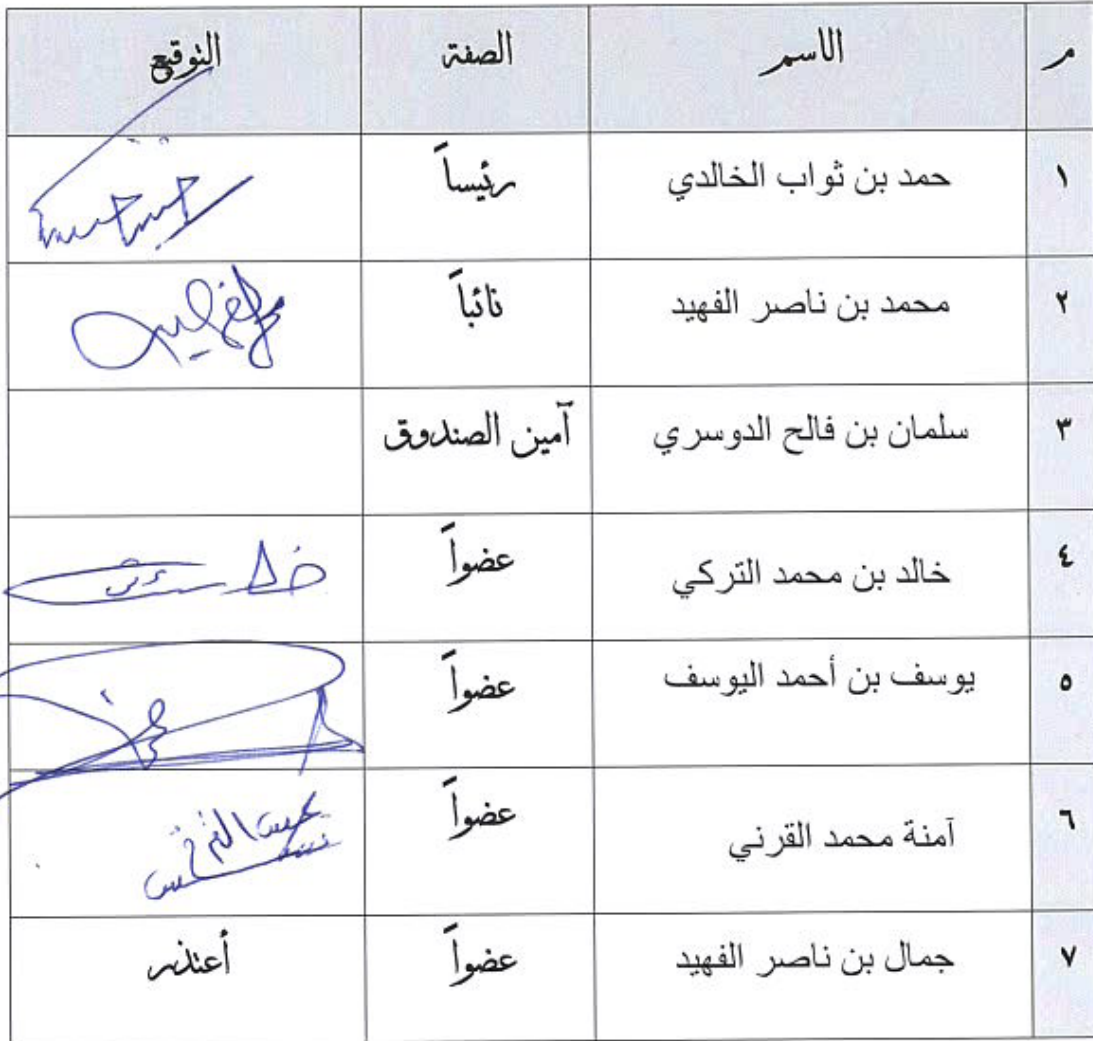 م الاسم الصفة التوقيع
١ حمد بن ثواب الخالدي رئيساً
٢ محمد بن ناصر الفهيد نائباً
٣ سلمان بن فالح الدوسري آمين الصندوق
٤ خالد بن محمد التركي عضواً
٥ يوسف بن أحمد اليوسف عضواً
٦ آمنة محمد القرني عضواً
٧ جمال بن ناصر الفهيد عضواً أعتذر